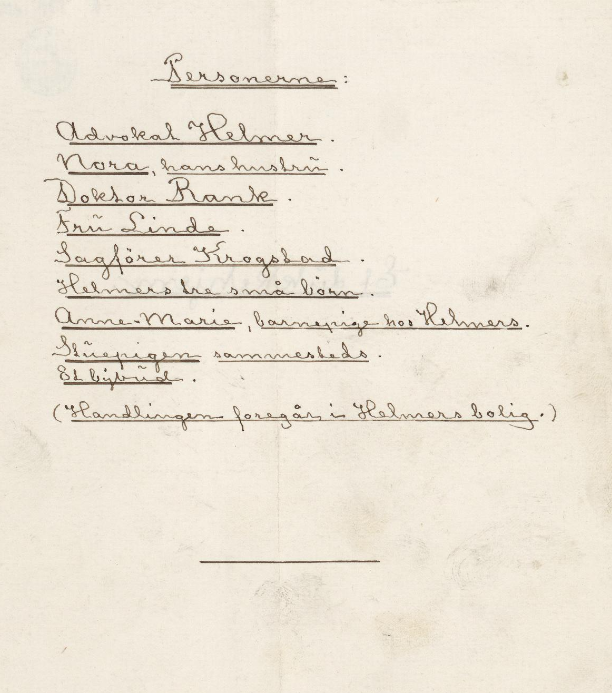 Personerne:
Advokat Helmer.
Nora, hans hustrū.
Doktor Rank.
Frū Linde.
Sagförer Krogstad.
Helmers tre små börn.
Anne-Marie, barnepige hos Helmers.
Stūepigen sammesteds.
Et bybūd.
(Handlingen foregår i Helmers bolig.)